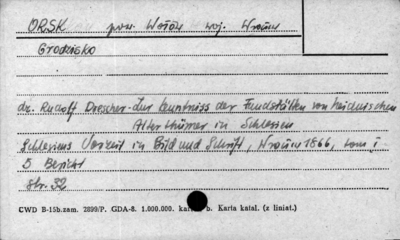 ORSK pow. Wołów woj. Wrocław
Grodzisko
dr. Rudolf Drescher - Zur Kenntniss der Fundstätten von heidnischen
Alterthümer in Schlesien
Schlesiens Vorzeit in Bild und Schrift, Wrocław 1866, tom I
5 Bericht
str. 32
CWD B-15b.zam. 2899/P. GDA-8. 1.000.000. kart. b. Karta katal. (z liniat.)